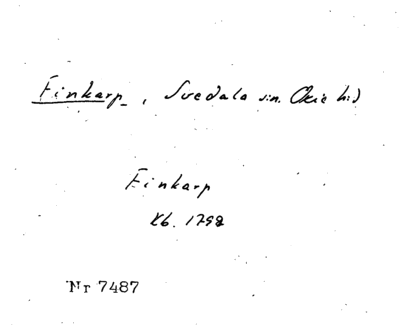 Finkarp, Svedala sn. Oxie hd
Finkarp
Kb. 1798
Nr 7487